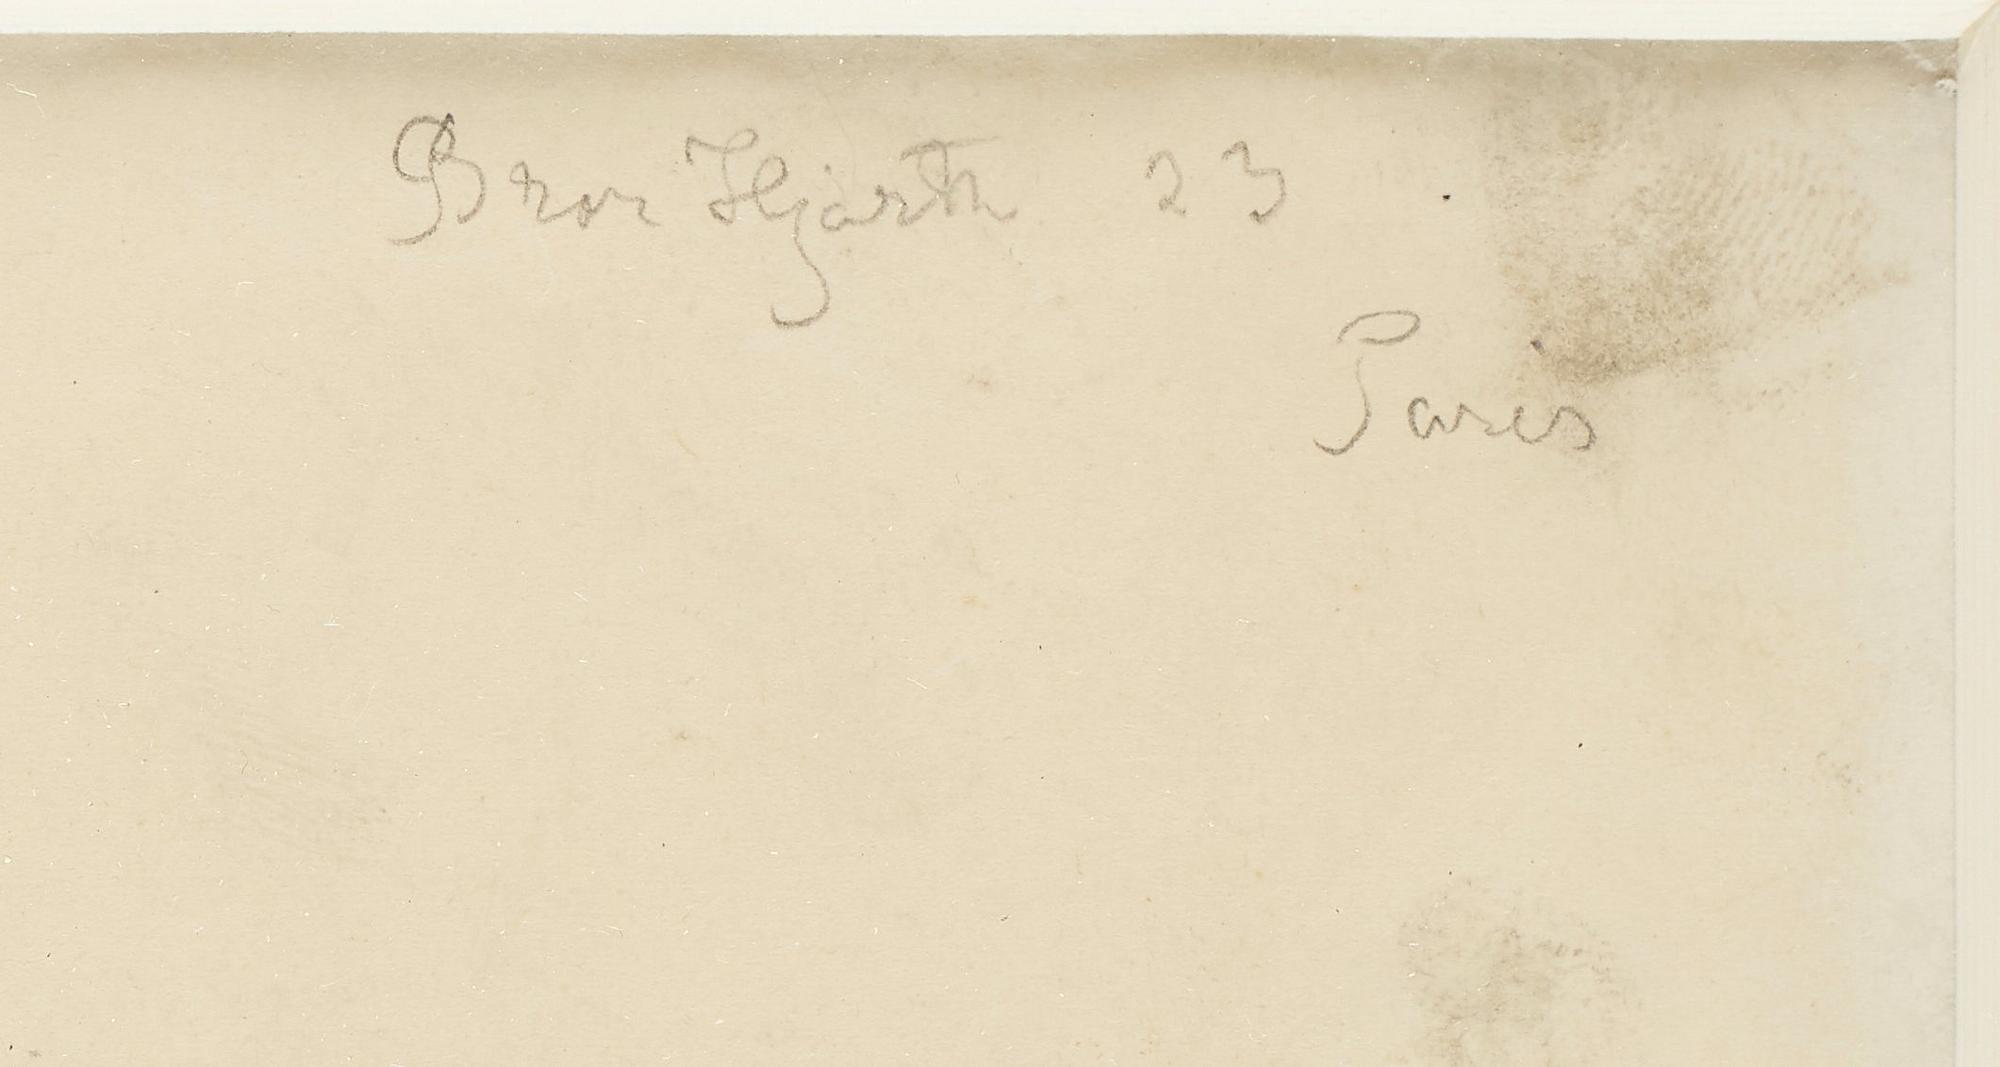 Bror Hjorth 23
Paris